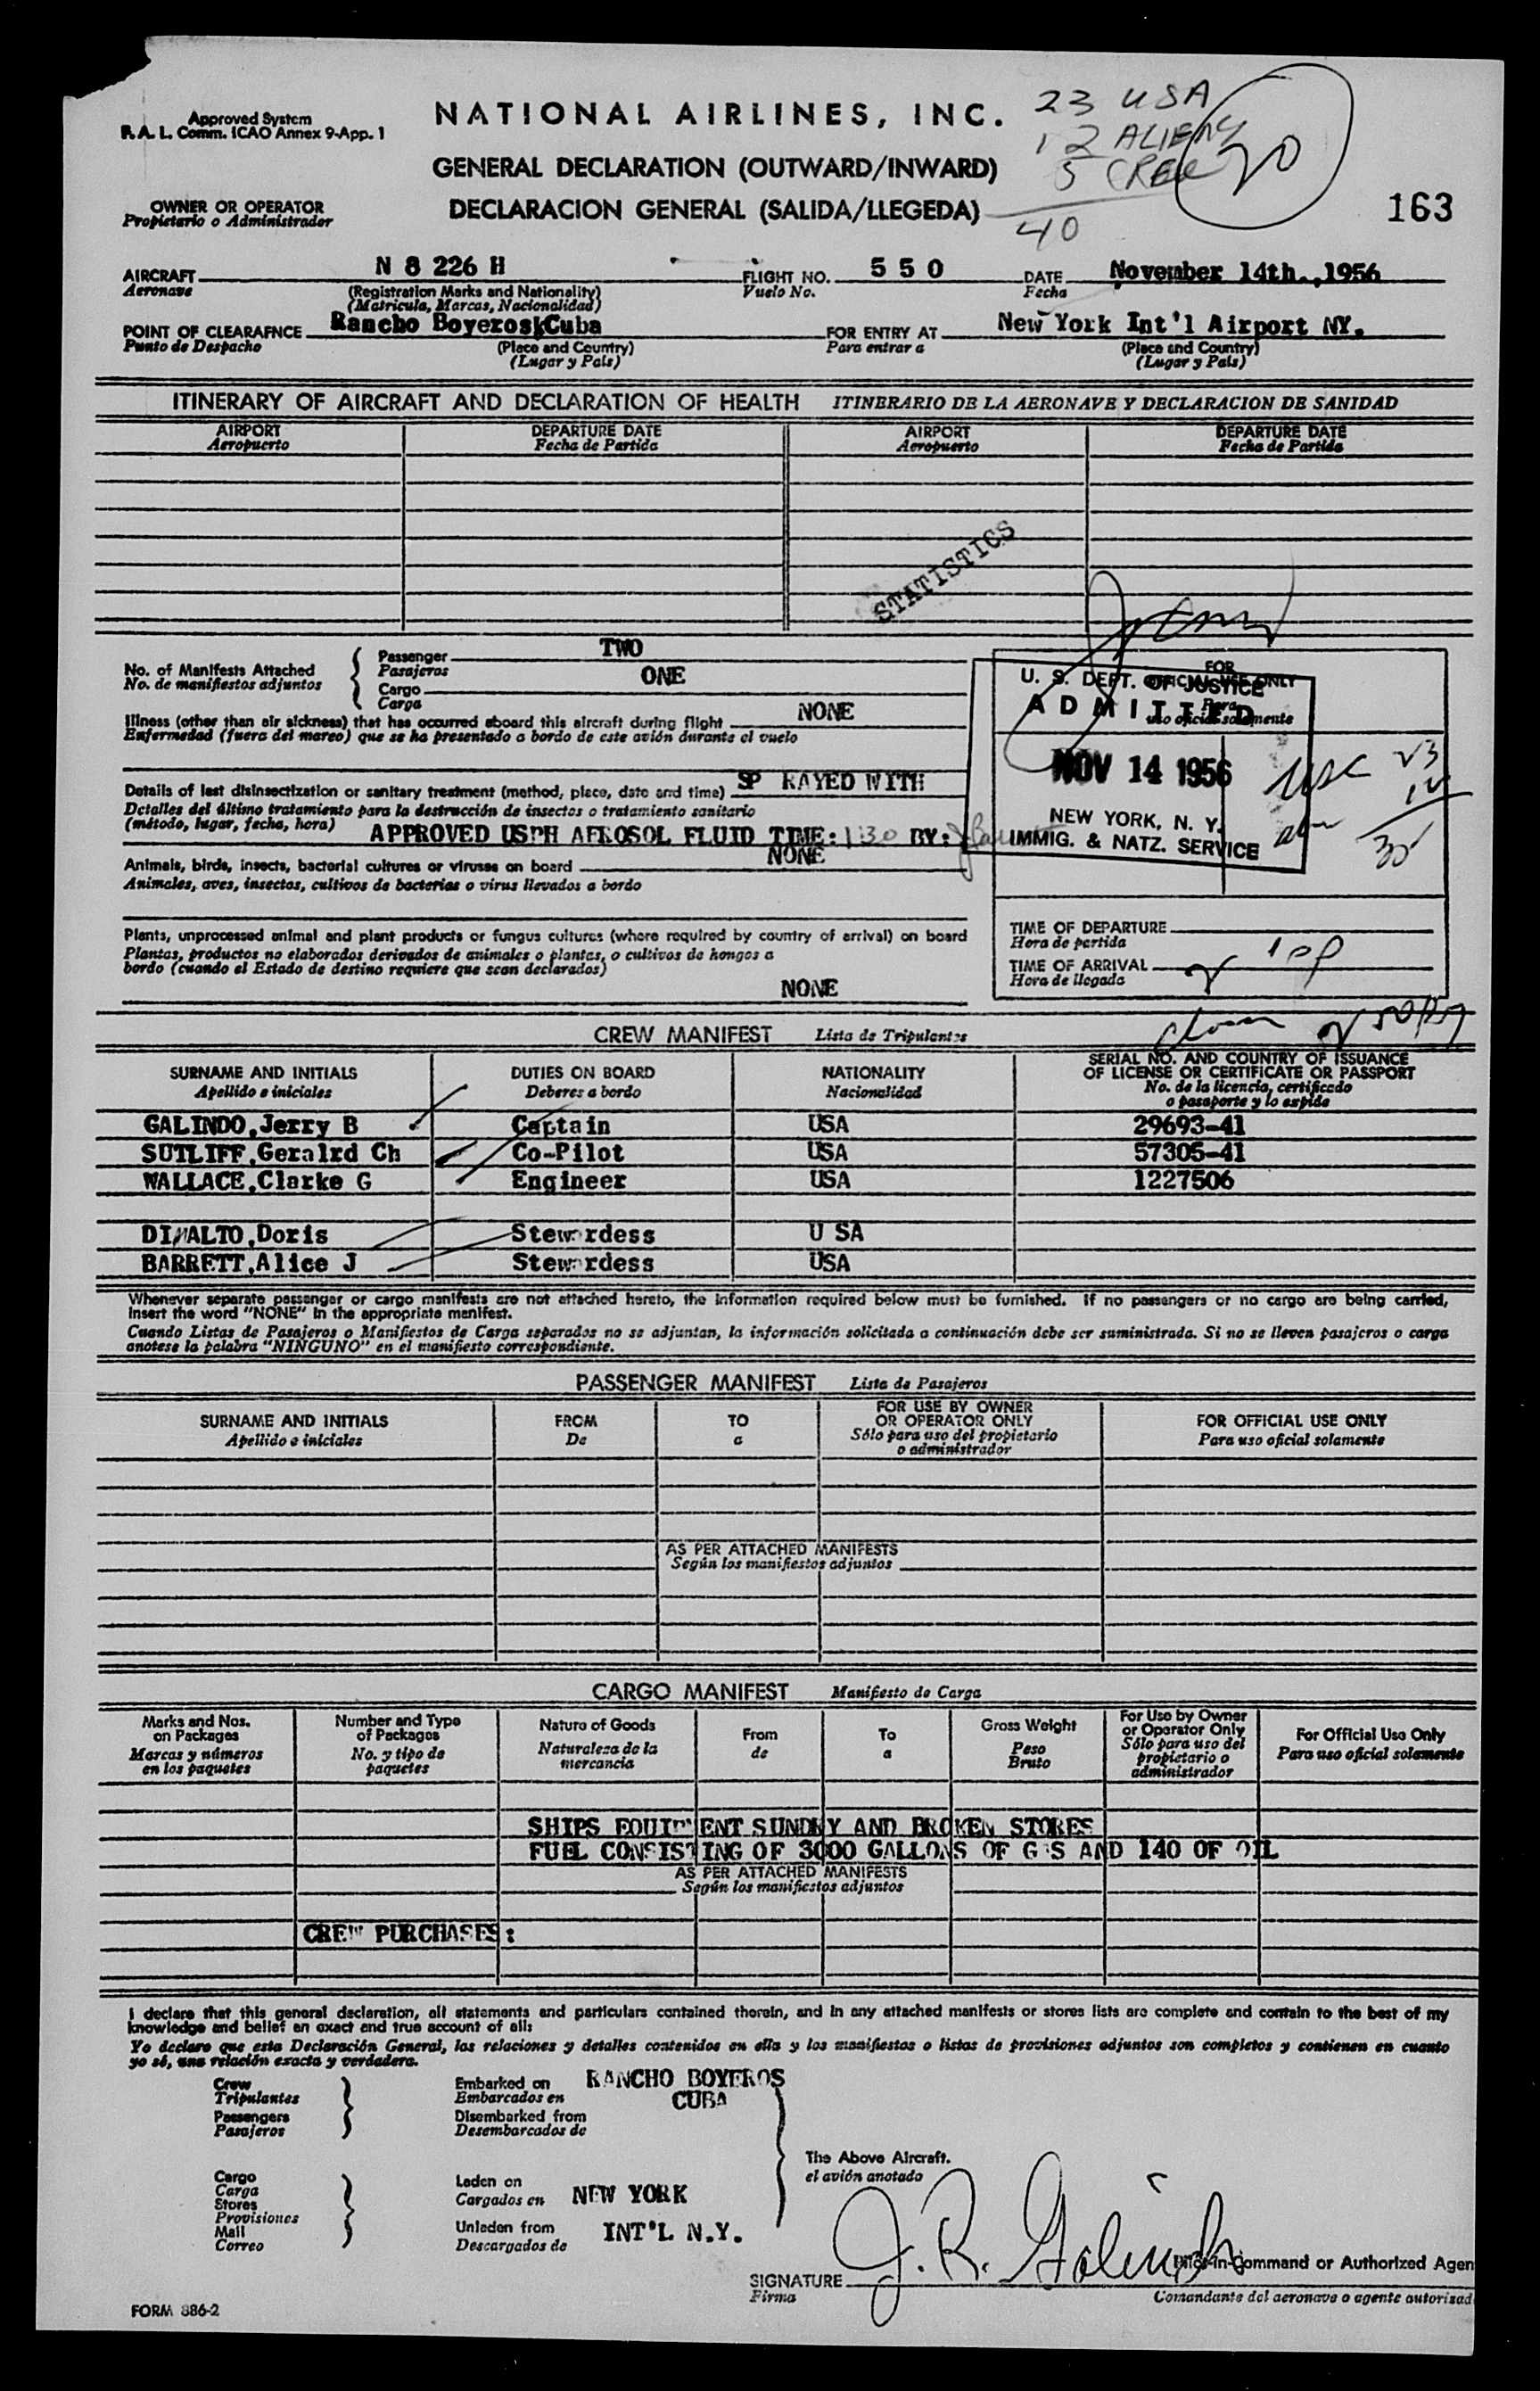 Approved System
F. A. L. Comm. ICAO Annex 9-App. 1
NATIONAL AIRLINES, INC.
23 USA
12 ALIENS
5 CREW
40
GENERAL DECLARATION (OUTWARD/INWARD)
OWNER OR OPERATOR
Propietario o Administrador
DECLARACION GENERAL (SALIDA/LLEGEDA)
163
AIRCRAFT N 8 226 H FLIGHT NO. 5 5 0 DATE November 14th.,1956
Aeronave (Registration Marks and Nationality) Vuelo No. Fecha
(Matricula, Marcas, Nacionalidad)
POINT OF CLEARAFNCE Rancho Boyeros,Cuba FOR ENTRY AT New York Int'l Airport NY.
Punto de Despacho (Place and Country) Para entrar a (Place and Country)
(Lugar y Pals) (Lugar y Pals)
ITINERARY OF AIRCRAFT AND DECLARATION OF HEALTH ITINERARIO DE LA AERONAVE Y DECLARACION DE SANIDAD
AIRPORT DEPARTURE DATE AIRPORT DEPARTURE DATE
Aeropuerto Fecha de Partida Aeropuerto Fecha de Partida
STATISTICS
No. of Manifests Attached
No. de manifiestos adjuntos
Passenger TWO
Pasajeros
Cargo ONE
Carga
Illness (other than air sickness) that has occurred aboard this aircraft during flight NONE
Enfermedad (fuera del mareo) que se ha presentado a bordo de este avión durante el vuelo
Details of last disinsectization or sanitary treatment (method, place, date and time) SP RAYED WITH
Detalles del último tratamiento para la destrucción de insectos o tratamiento sanitario
(método, lugar, fecha, hora) APPROVED USPH AEROSOL FLUID TIME: 130 BY:
Animals, birds, insects, bacterial cultures or viruses on board NONE
Animales, aves, insectos, cultivos de bacterias o virus llevados a bordo
Plants, unprocessed animal and plant products or fungus cultures (where required by country of arrival) on board
Plantas, productos no elaborados derivados de animales o plantas, o cultivos de hongos a
bordo (cuando el Estado de destino requiere que sean declarados)
NONE
FOR
OFFICIAL USE ONLY
Para
uso oficial solamente
U. S. DEPT. OF JUSTICE
ADMITTED
NOV 14 1956
NEW YORK, N. Y.
IMMIG. & NATZ. SERVICE
USC 23
12
35
TIME OF DEPARTURE
Hora de partida
TIME OF ARRIVAL
Hora de llegada
CREW MANIFEST Lista de Tripulantes
SURNAME AND INITIALS DUTIES ON BOARD NATIONALITY SERIAL NO. AND COUNTRY OF ISSUANCE
OF LICENSE OR CERTIFICATE OR PASSPORT
Apellido e iniciales Deberes a bordo Nacionalidad No. de la licencia, certificado
o pasaporte y lo expide
GALINDO,Jerry B Captain USA 29693-41
SUTLIFF,Geralrd Ch Co-Pilot USA 57305-41
WALLACE,Clarke G Engineer USA 1227506
DIMALTO,Doris Stewardess U SA
BARRETT,Alice J Stewardess USA
Whenever separate passenger or cargo manifests are not attached hereto, the information required below must be furnished. If no passengers or no cargo are being carried,
insert the word "NONE" in the appropriate manifest.
Cuando Listas de Pasajeros o Manifiestos de Carga separados no se adjuntan, la información solicitada a continuación debe ser suministrada. Si no se lleven pasajeros o carga
anotese la palabra "NINGUNO" en el manifiesto correspondiente.
PASSENGER MANIFEST Lista de Pasajeros
SURNAME AND INITIALS FROM TO FOR USE BY OWNER
OR OPERATOR ONLY FOR OFFICIAL USE ONLY
Apellido e iniciales De a Sólo para uso del propietario
o administrador Para uso oficial solamente
AS PER ATTACHED MANIFESTS
Según los manifiestos adjuntos
CARGO MANIFEST Manifiesto de Carga
Marks and Nos.
on Packages
Marcas y números
en los paquetes
Number and Type
of Packages
No. y tipo de
paquetes
Nature of Goods
Naturaleza de la
mercancia
From
de
To
a
Gross Weight
Peso
Bruto
For Use by Owner
or Operator Only
Sólo para uso del
propietario o
administrador
For Official Use Only
Para uso oficial solamente
SHIPS EQUIPMENT SUNDRY AND BROKEN STORES
FUEL CONSISTING OF 3000 GALLONS OF GAS AND 140 OF OIL
AS PER ATTACHED MANIFESTS
Según los manifiestos adjuntos
CREW PURCHASES:
I declare that this general declaration, all statements and particulars contained therein, and in any attached manifests or stores lists are complete and contain to the best of my
knowledge and belief an exact and true account of all:
Yo declaro que esta Declaración General, las relaciones y detalles contenidos en ella y los manifiestos o listas de provisiones adjuntos son completos y contienen en cuanto
yo sé, una relación exacta y verdadera.
Crew
Tripulantes
Passengers
Pasajeros
Embarked on RANCHO BOYEROS
Embarcados en CUBA
Disembarked from
Desembarcados de
Cargo
Carga
Stores
Provisiones
Mail
Correo
Laden on
Cargados en NEW YORK
Unladen from INT'L N.Y.
Descargados de
The Above Aircraft.
el avión anotado
J. R. Galindo
Pilot-in-Command or Authorized Agen
SIGNATURE
Firma
Comandante del aeronave o agente autorizad
FORM 886-2